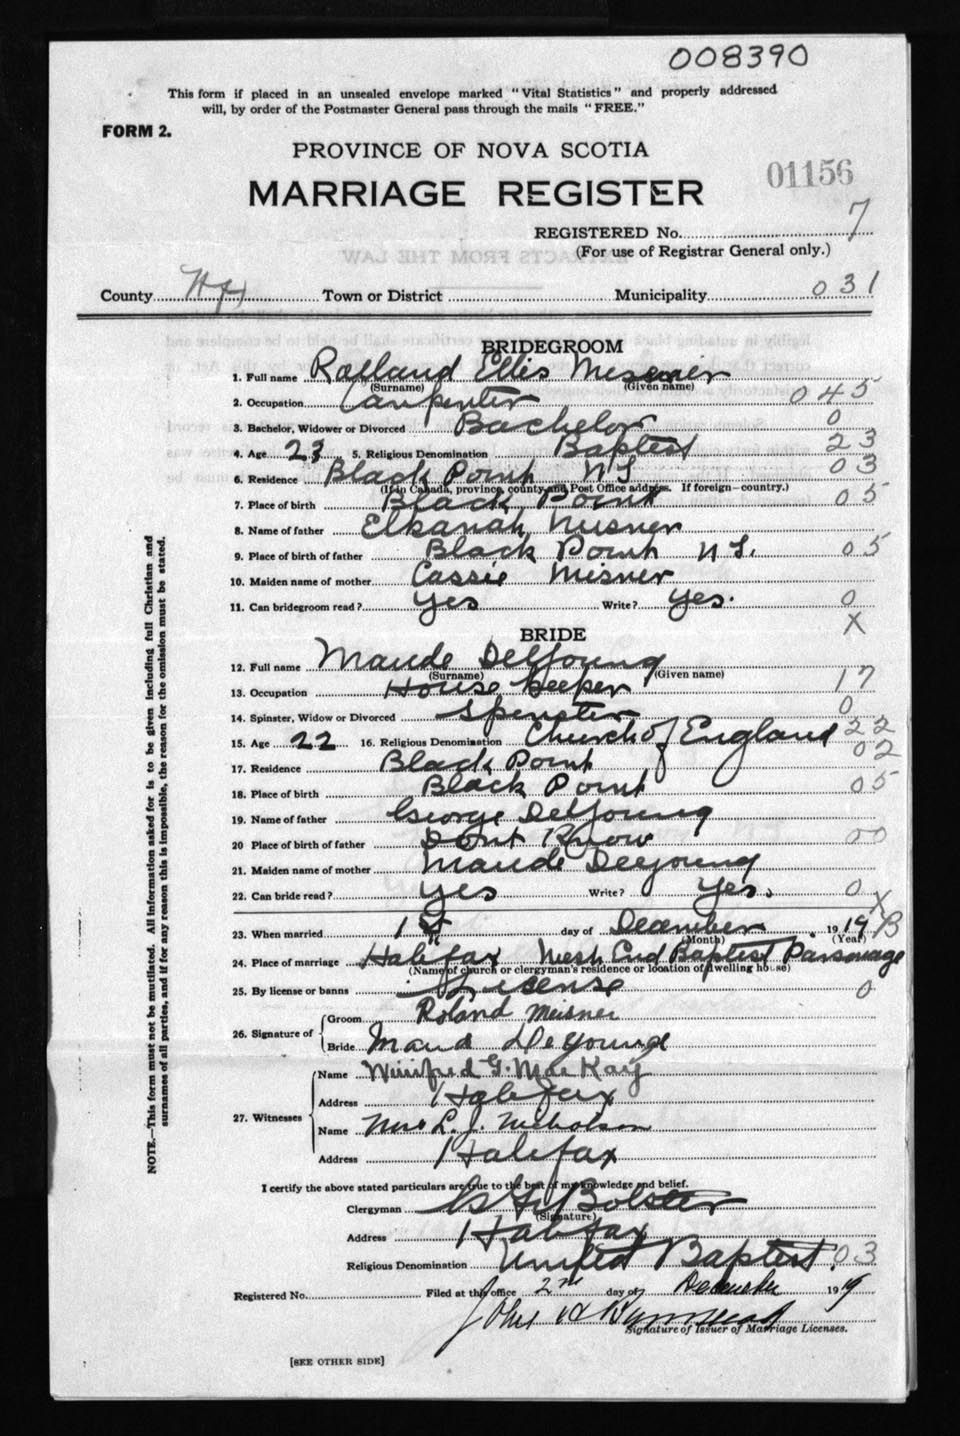 008390
This form if placed in an unsealed envelope marked "Vital Statistics" and properly addressed
will, by order of the Postmaster General pass through the mails "FREE."
FORM 2.
PROVINCE OF NOVA SCOTIA
01156
MARRIAGE REGISTER
REGISTERED No. 7
(For use of Registrar General only.)
County Hfx Town or District Municipality 031
BRIDEGROOM
1. Full name Rolland Ellis Meisner
(Surname) (Given name)
2. Occupation Carpenter 045
3. Bachelor, Widower or Divorced Bachelor 0
4. Age 23 5. Religious Denomination Baptist 23
6. Residence Black Point N S 03
(If in Canada, province, county and Post Office address. If foreign—country.)
7. Place of birth Black Point 05
8. Name of father Elkanah Meisner
9. Place of birth of father Black Point N S. 05
10. Maiden name of mother Cassie Misner
11. Can bridegroom read? Yes Write? Yes. 0
X
BRIDE
12. Full name Maude DeYoung
(Surname) (Given name)
13. Occupation House Keeper 17
14. Spinster, Widow or Divorced Spinster 0
15. Age 22 16. Religious Denomination Church of England 22
17. Residence Black Point 02
18. Place of birth Black Point 05
19. Name of father George DeYoung
20 Place of birth of father Dont Know 00
21. Maiden name of mother Maude Deyoung
22. Can bride read? Yes Write? Yes. 0
X
23. When married 1st day of December 1919 B
(Month) (Year)
24. Place of marriage Halifax West End Baptist Parsonage
(Name of church or clergyman's residence or location of dwelling house)
25. By license or banns License 0
26. Signature of Groom Roland Meisner
Bride Maud DeYoung
27. Witnesses Name Winifred G. MacKay
Address Halifax
Name Mrs L. J. Nicholson
Address Halifax
I certify the above stated particulars are true to the best of my knowledge and belief.
Clergyman Bolster
(Signature)
Address Halifax
Religious Denomination United Baptist. 03
Registered No. Filed at this office 2nd day of December 1919
John
Signature of Issuer of Marriage Licenses.
[SEE OTHER SIDE]
NOTE.—This form must not be mutilated. All information asked for is to be given including full Christian and
surnames of all parties, and if for any reason this is impossible, the reason for the omission must be stated.